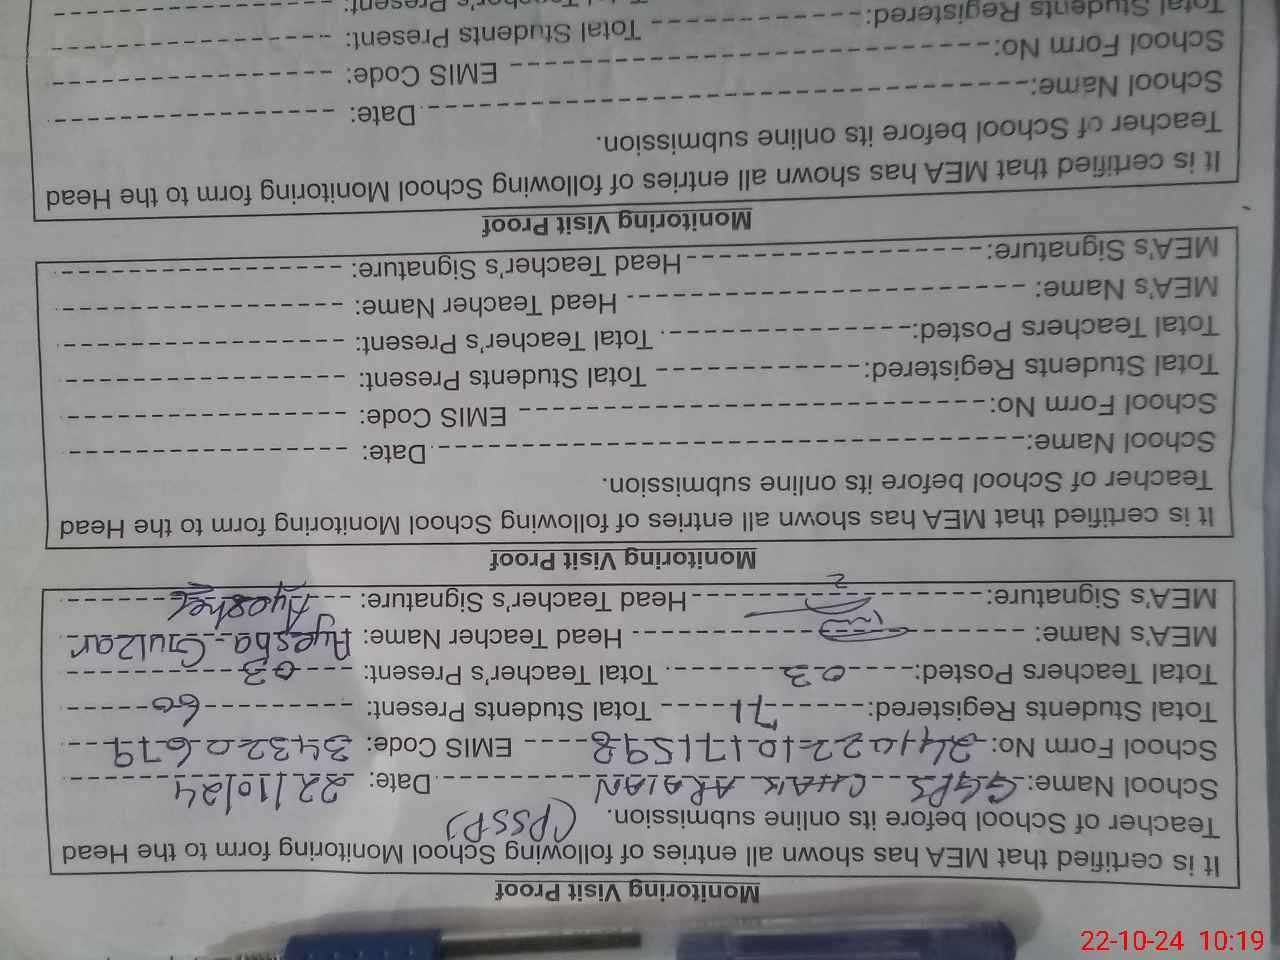 Monitoring Visit Proof
It is certified that MEA has shown all entries of following School Monitoring form to the Head
Teacher of School before its online submission. (PSSP)
School Name: GGPS CHAK ARAIAN Date: 22/10/24
School Form No: EMIS Code: 34320679
Total Students Registered: 71 Total Students Present: 60
Total Teachers Posted: 03 Total Teacher's Present: 03
MEA'S Name: Head Teacher Name: Ayesha Gulzar
MEA'S Signature: Head Teacher's Signature: Ayesha
Monitoring Visit Proof
It is certified that MEA has shown all entries of following School Monitoring form to the Head
Teacher of School before its online submission.
School Name: Date:
School Form No: EMIS Code:
Total Students Registered: Total Students Present:
Total Teachers Posted: Total Teacher's Present:
MEA'S Name: Head Teacher Name:
MEA'S Signature: Head Teacher's Signature:
Monitoring Visit Proof
It is certified that MEA has shown all entries of following School Monitoring form to the Head
Teacher of School before its online submission.
School Name: Date:
School Form No: EMIS Code:
Total Students Registered: Total Students Present:
Total Teacher's Present:
22-10-24 10:19